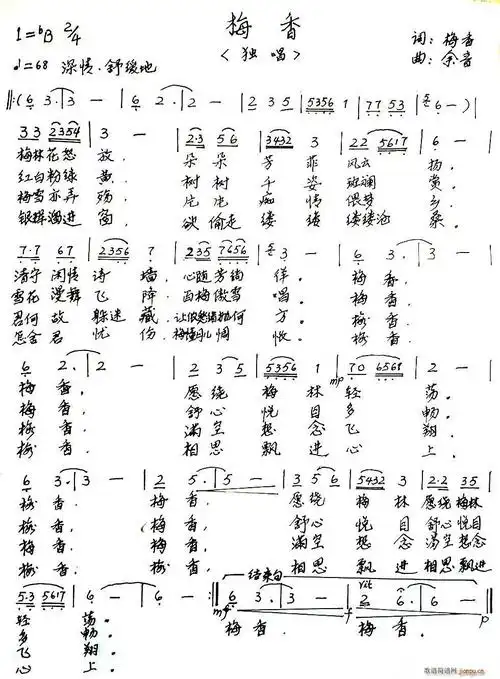 梅香
1=♭B 2/4
<独唱>
词:梅香
♩=68 深情.舒缓地
曲:余音
‖:(6 3. | 3 — | 6 2. | 2 — | 2 3 5 | 5356 1 | 77 53 | 6 —) |
33 2354 | 3 — | 2·3 5 6 | 3432 3 | 22 5617 | 6 — |
梅林花怒放. 朵朵芳菲风云扬.
红白粉绿黄. 树树千姿斑斓赏.
梅雪亦弄殇. 片片痴情偎梦乡.
银辉溜进窗. 欲偷走缕缕缕沧桑.
7·7 67 | 2356 7 | 235 7656 | 3 — | 6 3. | 3 — |
清守闲情诗墙, 心随芳徜徉. 梅香,
雪花漫舞飞降. 西梅傲雪唱. 梅香,
君何故躲迷藏. 方. 梅香,
怎舍君忧伤, 惆怅. 梅香,
6 2. | 2 — | 2 3 5 | 5356 1 | 70 6561 | 2 — |
梅香, 愿绕梅林轻荡.
梅香, 舒心悦目多畅.
梅香, 满空想念飞翔.
梅香, 相思飘进心上.
6 3. | 3 — | 2 5. | 5 — | 3 5 6 | 5432 3 | 2·2 35 |
梅香, 梅香, 愿绕梅林愿绕梅林
梅香, 梅香, 舒心悦目舒心悦目
梅香, 梅香, 满空想念满空想念
梅香, 梅香, 相思飘进相思飘进
结束句
5·3 5617 | 6 — | 6 — :‖ 6 3. | 3 — | 2 6. | 6 — ‖
mf f rit p
轻荡. 梅香. 梅香.
多畅.
飞翔.
心上.
歌谱简谱网
jianpu.cn